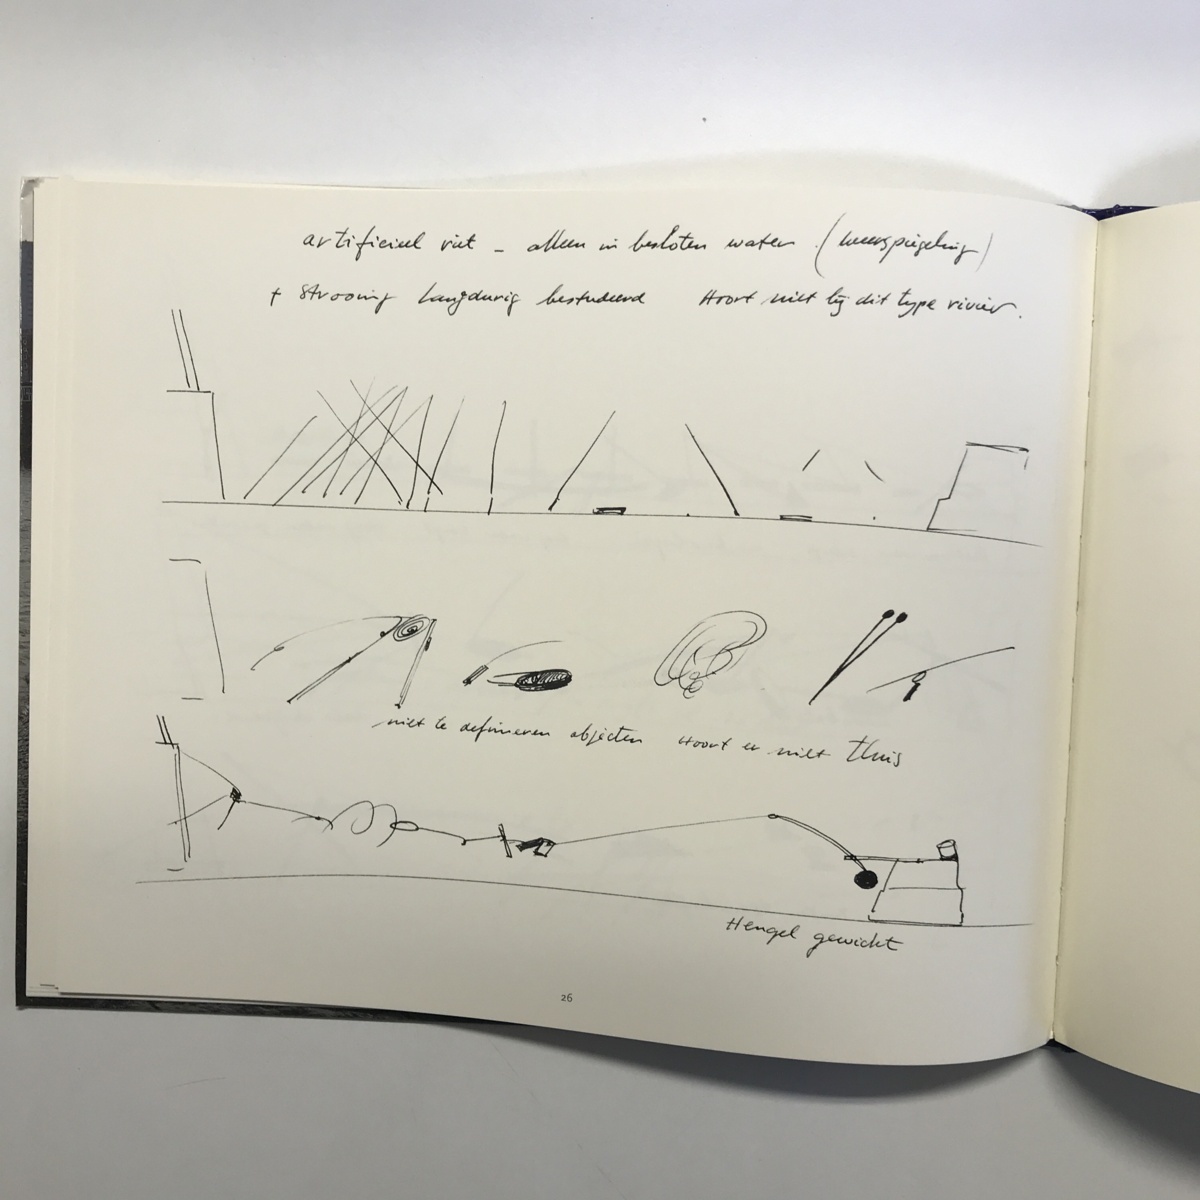 artificieel riet - alleen in besloten water. (weerspiegeling)
+ strooming langdurig bestudeerd Hoort niet bij dit type rivier.
niet te definieren objecten Hoort er niet thuis
Hengel gewicht
26